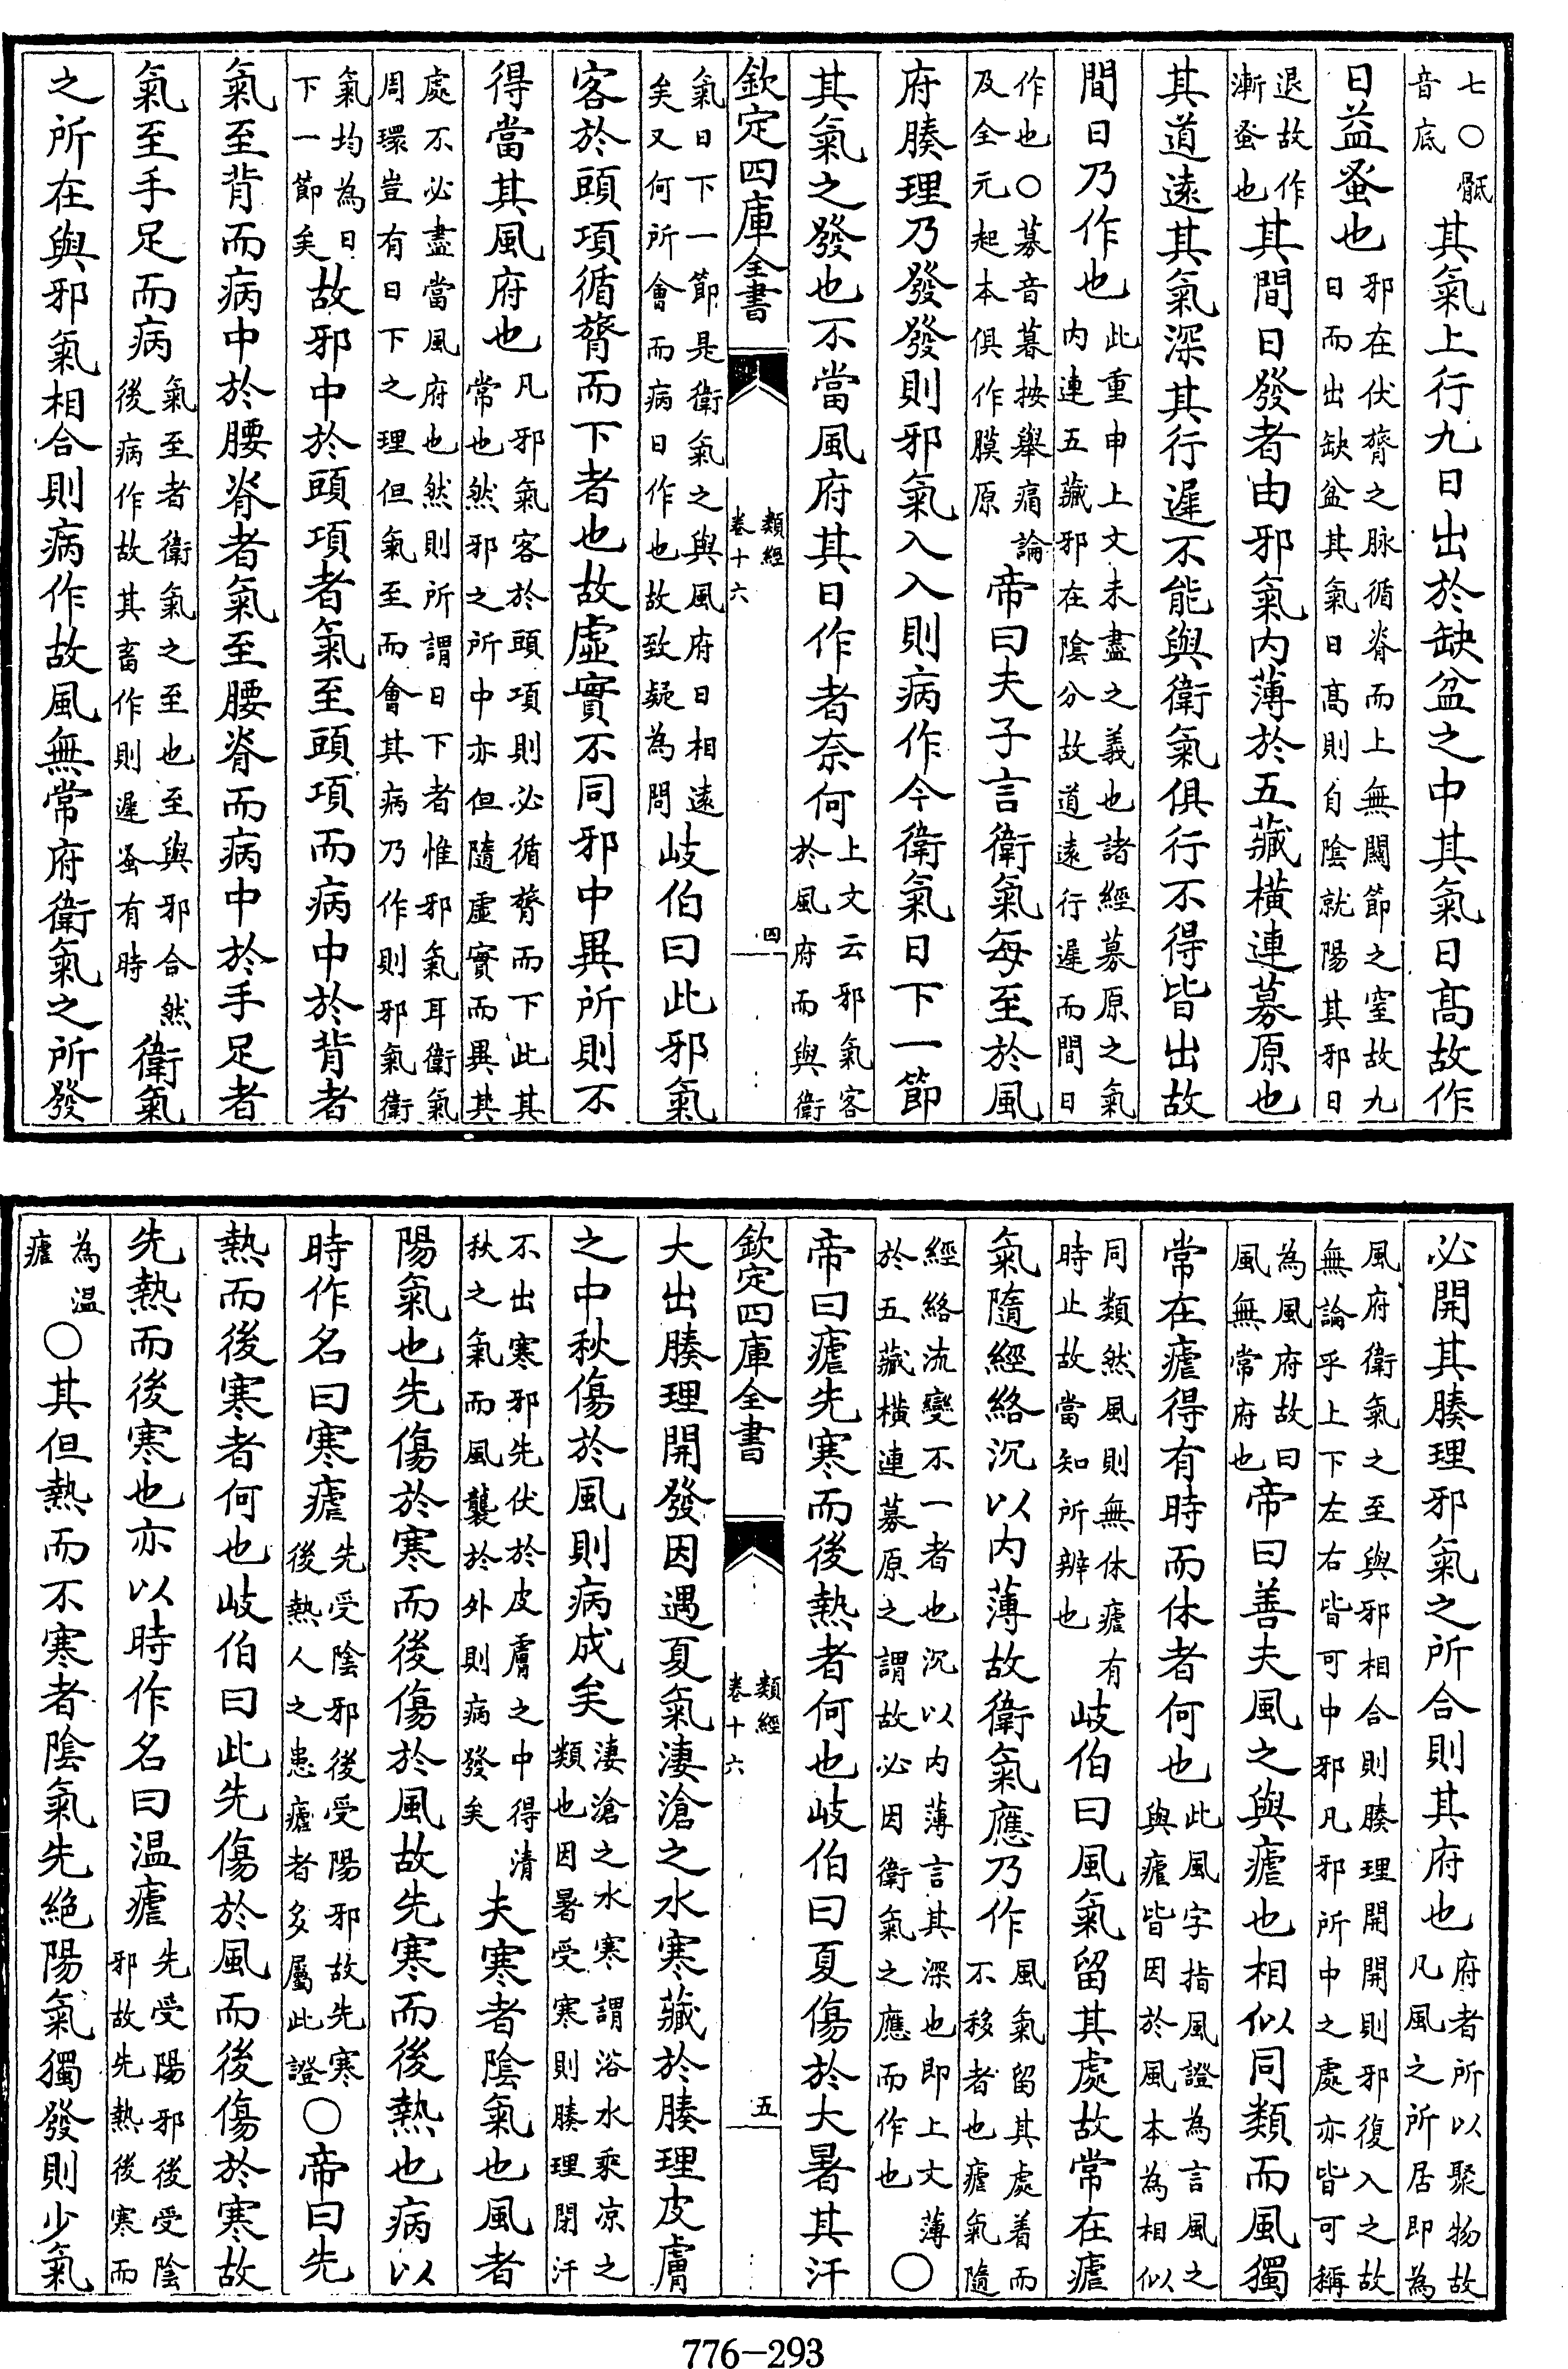 七〇骶音底其氣上行九日出於缺盆之中其氣日髙故作
日益蚤也邪在伏膂之脉循脊而上無關節之窒故九日而出缺盆其氣日髙則自隂就陽其邪日
退故作漸蚤也其間日發者由邪氣内薄於五藏橫連募原也
其道遠其氣深其行遲不能與衛氣俱行不得皆出故
間日乃作也此重申上文未盡之義也諸經募原之氣内連五藏邪在隂分故道遠行遲而間日
作也〇募音暮按舉痛論及全元起本俱作膜原帝曰夫子言衛氣每至於風
府腠理乃發發則邪氣入入則病作今衛氣日下一節
其氣之發也不當風府其日作者奈何上文云邪氣客於風府而與衛
欽定四庫全書 類經卷十六 四
氣日下一節是衛氣之與風府日相遠矣又何所會而病日作也故致疑為問岐伯曰此邪氣
客於頭項循膂而下者也故虛實不同邪中異所則不
得當其風府也凡邪氣客於頭項則必循膂而下此其常也然邪之所中亦但隨虛實而異其
處不必盡當風府也然則所謂日下者惟邪氣耳衛氣周環豈有日下之理但氣至而會其病乃作則邪氣衛
氣均為日下一節矣故邪中於頭項者氣至頭項而病中於背者
氣至背而病中於腰脊者氣至腰脊而病中於手足者
氣至手足而病氣至者衛氣之至也至與邪合然後病作故其畜作則遲蚤有時衛氣
之所在與邪氣相合則病作故風無常府衛氣之所發
必開其腠理邪氣之所合則其府也府者所以聚物故凡風之所居即為
風府衛氣之至與邪相合則腠理開開則邪復入之故無論乎上下左右皆可中邪凡邪所中之處亦皆可稱
為風府故曰風無常府也帝曰善夫風之與瘧也相似同類而風獨
常在瘧得有時而休者何也此風字指風證為言風之與瘧皆因於風本為相似
同類然風則無休瘧有時止故當知所辨也岐伯曰風氣留其處故常在瘧
氣隨經絡沉以内薄故衛氣應乃作風氣留其處着而不移者也瘧氣隨
經絡流變不一者也沉以内薄言其深也即上文薄於五藏橫連募原之謂故必因衛氣之應而作也〇
帝曰瘧先寒而後熱者何也岐伯曰夏傷於大暑其汗
欽定四庫全書 類經卷十六 五
大出腠理開發因遇夏氣淒滄之水寒藏於腠理皮膚
之中秋傷於風則病成矣淒滄之水寒謂浴水乘凉之類也因暑受寒則腠理閉汗
不出寒邪先伏於皮膚之中得清秋之氣而風襲於外則病發矣夫寒者隂氣也風者
陽氣也先傷於寒而後傷於風故先寒而後熱也病以
時作名曰寒瘧先受隂邪後受陽邪故先寒後熱人之患瘧者多屬此證〇帝曰先
熱而後寒者何也岐伯曰此先傷於風而後傷於寒故
先熱而後寒也亦以時作名曰温瘧先受陽邪後受隂邪故先熱後寒而
為温瘧〇其但熱而不寒者隂氣先絶陽氣獨發則少氣
776-293